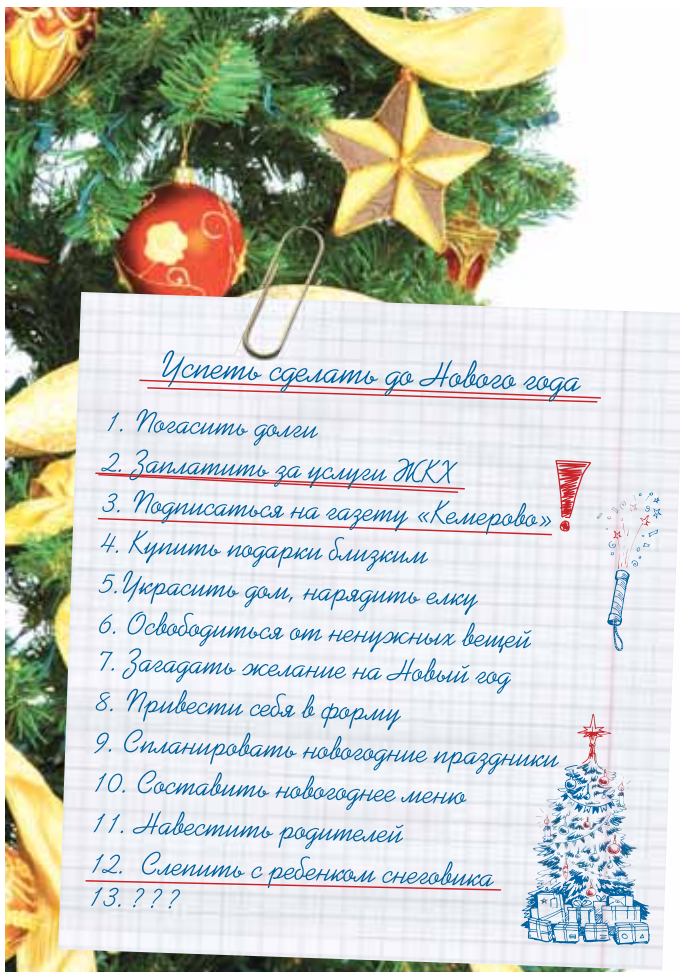 Успеть сделать до Нового года
1. Погасить долги
2. Заплатить за услуги ЖКХ
3. Подписаться на газету «Кемерово»
4. Купить подарки близким
5. Украсить дом, нарядить елку
6. Освободиться от ненужных вещей
7. Загадать желание на Новый год
8. Привести себя в форму
9. Спланировать новогодние праздники
10. Составить новогоднее меню
11. Навестить родителей
12. Слепить с ребенком снеговика
13. ? ? ?